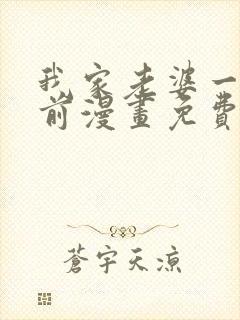 我家老婆一
前漫畫免費
蒼宇天涼